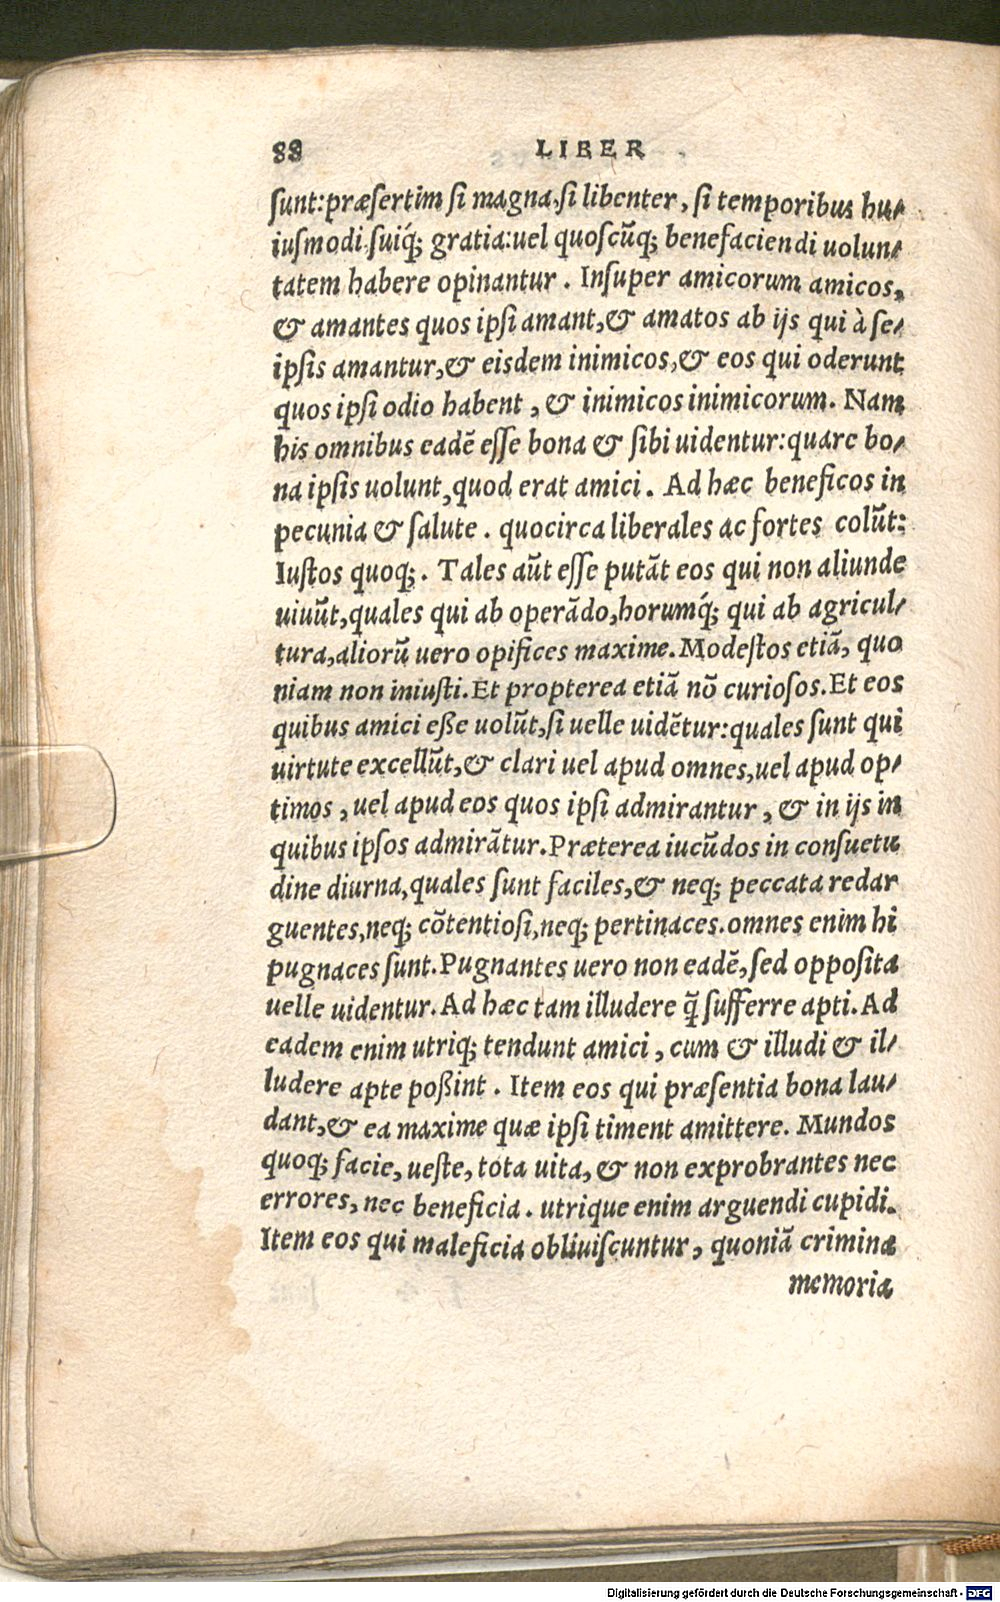 88 LIBER
sunt:præsertim si magna,si libenter, si temporibus hu-
iusmodi suiq́; gratia:uel quoscũq; benefaciendi uolun-
tatem habere opinantur. Insuper amicorum amicos,
& amantes quos ipsi amant,& amatos ab ijs qui à se-
ipsis amantur,& eisdem inimicos,& eos qui oderunt
quos ipsi odio habent, & inimicos inimicorum. Nam
his omnibus eadẽ esse bona & sibi uidentur:quare bo-
na ipsis uolunt,quod erat amici. Ad hæc beneficos in
pecunia & salute. quocirca liberales ac fortes colũt:
Iustos quoq;. Tales aũt esse putãt eos qui non aliunde
uiuũt,quales qui ab operãdo,horumq́; qui ab agricul-
tura,aliorũ uero opifices maxime.Modestos etiã, quo
niam non iniusti.Et propterea etiã nõ curiosos.Et eos
quibus amici eße uolũt,si uelle uidẽtur:quales sunt qui
uirtute excellũt,& clari uel apud omnes,uel apud op-
timos, uel apud eos quos ipsi admirantur, & in ijs in
quibus ipsos admirãtur.Præterea iucũdos in consuetu
dine diurna,quales sunt faciles,& neq; peccata redar
guentes,neq; cõtentiosi,neq; pertinaces.omnes enim hi
pugnaces sunt.Pugnantes uero non eadẽ,sed opposita
uelle uidentur.Ad hæc tam illudere q̃ sufferre apti.Ad
eadem enim utriq; tendunt amici, cum & illudi & il-
ludere apte poßint. Item eos qui præsentia bona lau-
dant,& ea maxime quæ ipsi timent amittere. Mundos
quoq; facie, ueste, tota uita, & non exprobrantes nec
errores, nec beneficia. utrique enim arguendi cupidi.
Item eos qui maleficia obliuiscuntur, quoniã criminæ
memoria
Digitalisierung gefördert durch die Deutsche Forschungsgemeinschaft - DFG